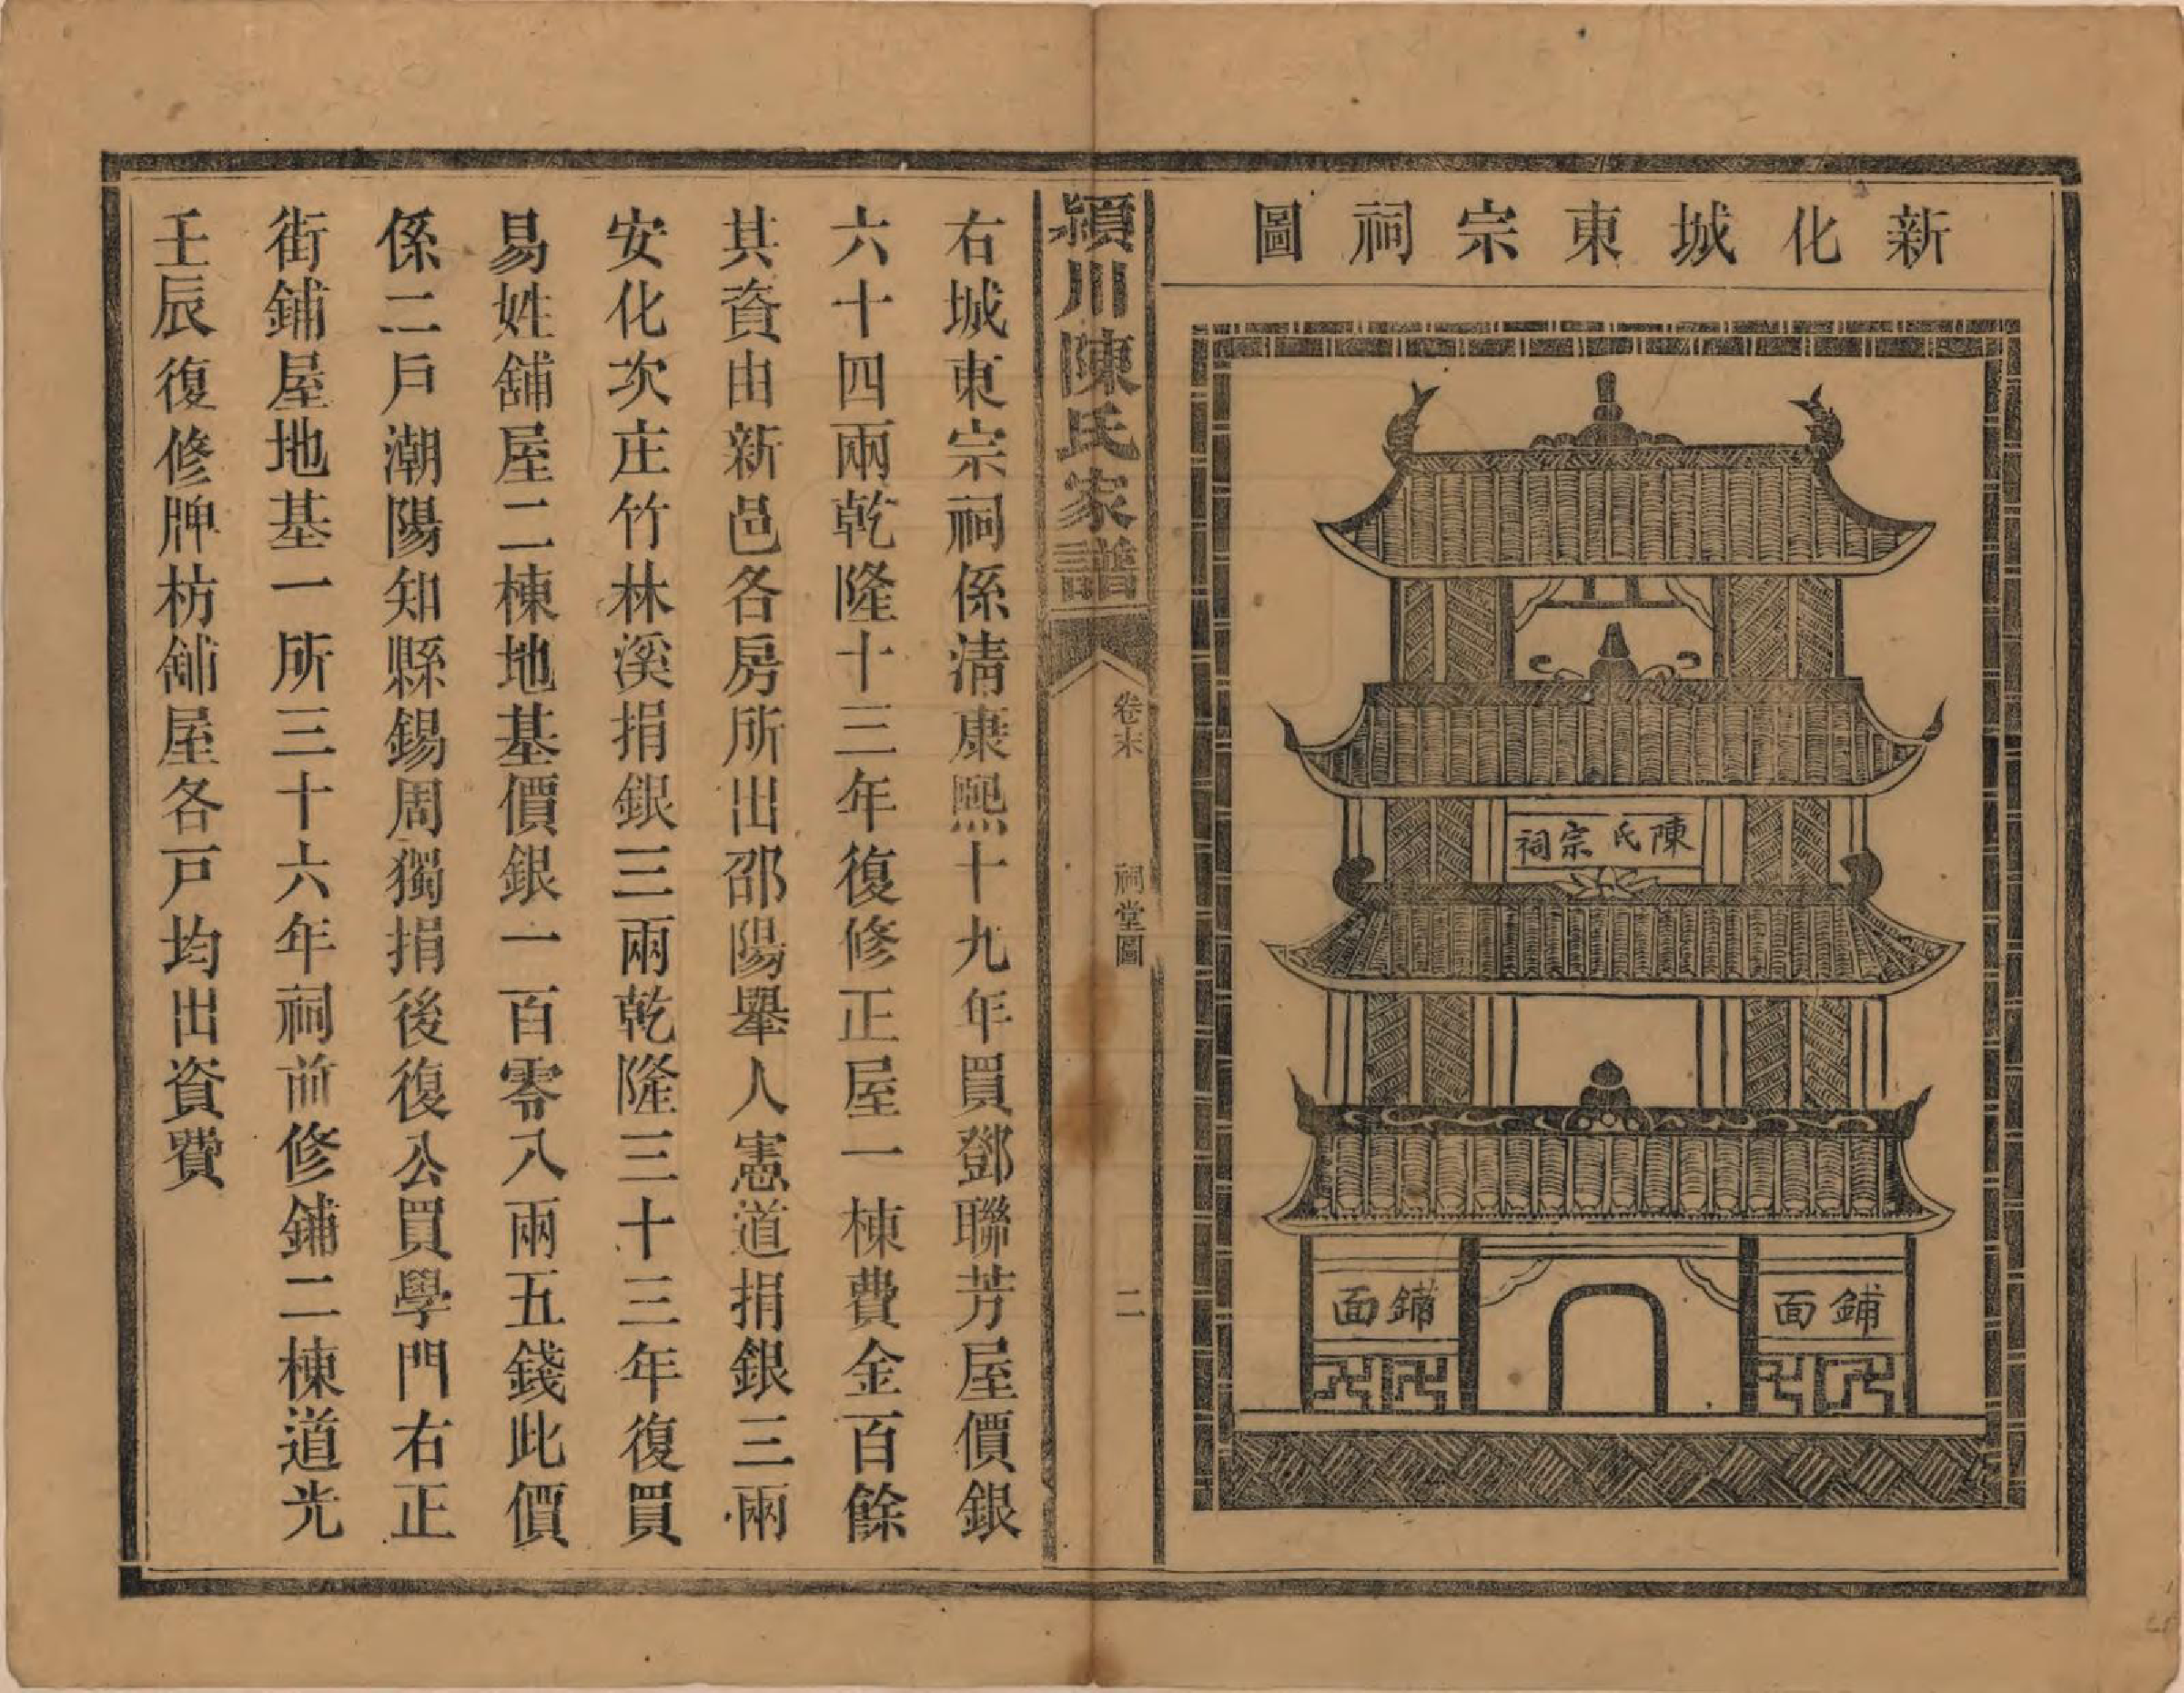 新化城東宗祠圖
陳氏宗祠
鋪面
鋪面
潁川陳氏家譜
卷末
祠堂圖
二
右城東宗祠係清康熙十九年買鄧聯芳屋價銀
六十四兩乾隆十三年復修正屋一棟費金百餘
其資由新邑各房所出邵陽舉人憲道捐銀三兩
安化次庄竹林溪捐銀三兩乾隆三十三年復買
易姓舖屋二棟地基價銀一百零八兩五錢此價
係二戶潮陽知縣錫周獨捐後復公買學門右正
街鋪屋地基一所三十六年祠前修鋪二棟道光
壬辰復修牌枋舖屋各戶均出資費